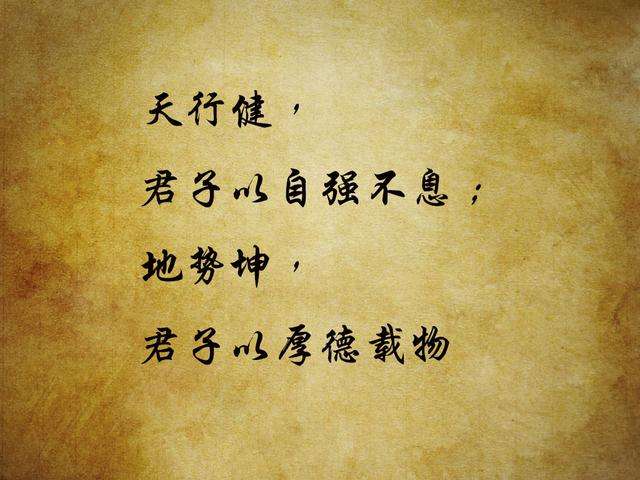 天行健，
君子以自强不息；
地势坤，
君子以厚德载物